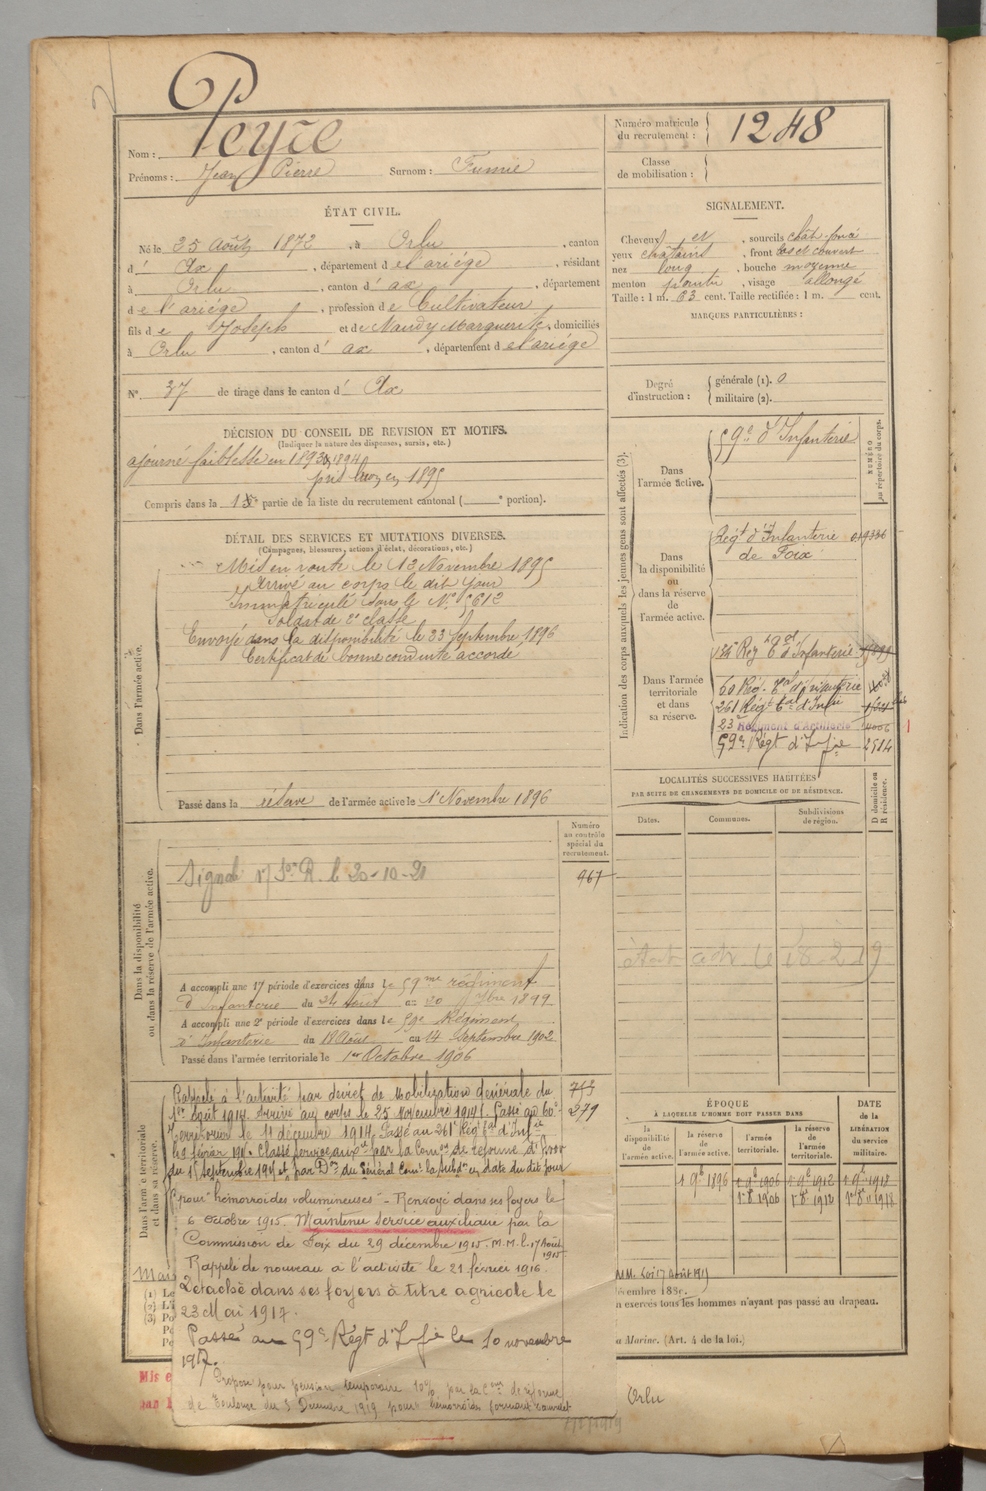 Nom : Peyre
Prénoms : Jean Pierre Surnom : Fumié
ÉTAT CIVIL.
Né le 25 Août 1872, à Orlu, canton
d' Ax, département de l'ariége, résidant
à Orlu, canton d' ax, département
de l'ariége, profession de Cultivateur
fils de Joseph et de Naudy Marguerite, domiciliés
à Orlu, canton d' ax, département de l'ariége
N° 37 de tirage dans le canton d' Ax
DÉCISION DU CONSEIL DE REVISION ET MOTIFS.
(Indiquer la nature des dispenses, sursis, etc.)
ajourné faiblesse en 1893, 1894
pris bon en 1895
Compris dans la 1re partie de la liste du recrutement cantonal ( e portion).
DÉTAIL DES SERVICES ET MUTATIONS DIVERSES.
(Campagnes, blessures, actions d'éclat, décorations, etc.)
Dans l'armée active.
Mis en route le 13 Novembre 1895
Arrivé au corps le dit jour
Immatriculé sous le N° 5612
Soldat de 2e classe
Envoyé dans la disponibilité le 23 Septembre 1896
Certificat de bonne conduite accordé
Passé dans la réserve de l'armée active le 1er Novembre 1896
Numéro
au contrôle
spécial du
recrutement.
Dans la disponibilité
ou dans la réserve de l'armée active.
967
le 20-10-21
A accompli une 1re période d'exercices dans le 59me régiment
d'Infanterie du 24 Août au 20 7bre 1899
A accompli une 2e période d'exercices dans le 59e Régiment
d'Infanterie du 18 Août au 14 Septembre 1902
Passé dans l'armée territoriale le 1er Octobre 1906
Dans l'armée territoriale
et dans sa réserve.
753
279
Rappelé à l'activité par décret de Mobilisation Générale du
1er Août 1914. Arrivé au corps le 25 Novembre 1914. Passé au 60e
Territorial le 11 décembre 1914. Passé au 261e Régt tal d'Infie
le 5 février 1915. Classé service auxre par la Comon de réforme d
du 15 Septembre 1915 et par Don du Général Comt la Subdon en date du dit jour
pour "hémorroïdes volumineuses" - Renvoyé dans ses foyers le
6 octobre 1915. Maintenu Service auxiliaire par la
Commission de Foix du 29 décembre 1915. M.M. l. 17 Août
1915
Rappelé de nouveau à l'activité le 21 février 1916.
Détaché dans ses foyers à titre agricole le
23 Mai 1917.
Passé au 59e Régt d'Infie le 10 novembre
1917.
Proposé pour pension temporaire 10% par la Com de réforme
de Toulouse du 5 Décembre 1919 pour hémorroïdes formant bourrelet
Numéro matricule
du recrutement : 1248
Classe
de mobilisation :
SIGNALEMENT.
Cheveux et, sourcils chât. foncé
yeux châtains, front bas et couvert
nez long, bouche moyenne
menton pointu, visage allongé
Taille : 1 m. 63 cent. Taille rectifiée : 1 m. cent.
MARQUES PARTICULIÈRES :
Degré
d'instruction : générale (1). 0
militaire (2).
Indication des corps auxquels les jeunes gens sont affectés (3).
NUMÉRO
au répertoire du corps.
Dans
l'armée active.
59e d'Infanterie
Dans
la disponibilité
ou
dans la réserve
de
l'armée active.
Régt d'Infanterie
de Foix
Dans l'armée
territoriale
et dans
sa réserve.
Rég tal d'Infanterie
60 Rég. Tal d'infanterie
261 Régt tal d'Infie
23e Régiment d'Artillerie 4006
59e Régt d'Infie 2514
LOCALITÉS SUCCESSIVES HABITÉES
PAR SUITE DE CHANGEMENTS DE DOMICILE OU DE RÉSIDENCE.
D domicile ou
R résidence.
Dates. Communes. Subdivisions
de région.
le 18-2-19
ÉPOQUE
À LAQUELLE L'HOMME DOIT PASSER DANS
DATE
de la
LIBÉRATION
du service
militaire.
la
disponibilité
de
l'armée active.
la réserve
de
l'armée active.
l'armée
territoriale.
la réserve
de
l'armée
territoriale.
1 9b 1896 1 9b 1906 1 9b 1912 1 9b 1918
1er 8b 1906 1er 8b 1912 1er 8b 1918
M.M. Loi 17 Août 1915
écembre 1889.
n exercés tous les hommes n'ayant pas passé au drapeau.
a Marine. (Art. 4 de la loi.)
Orlu